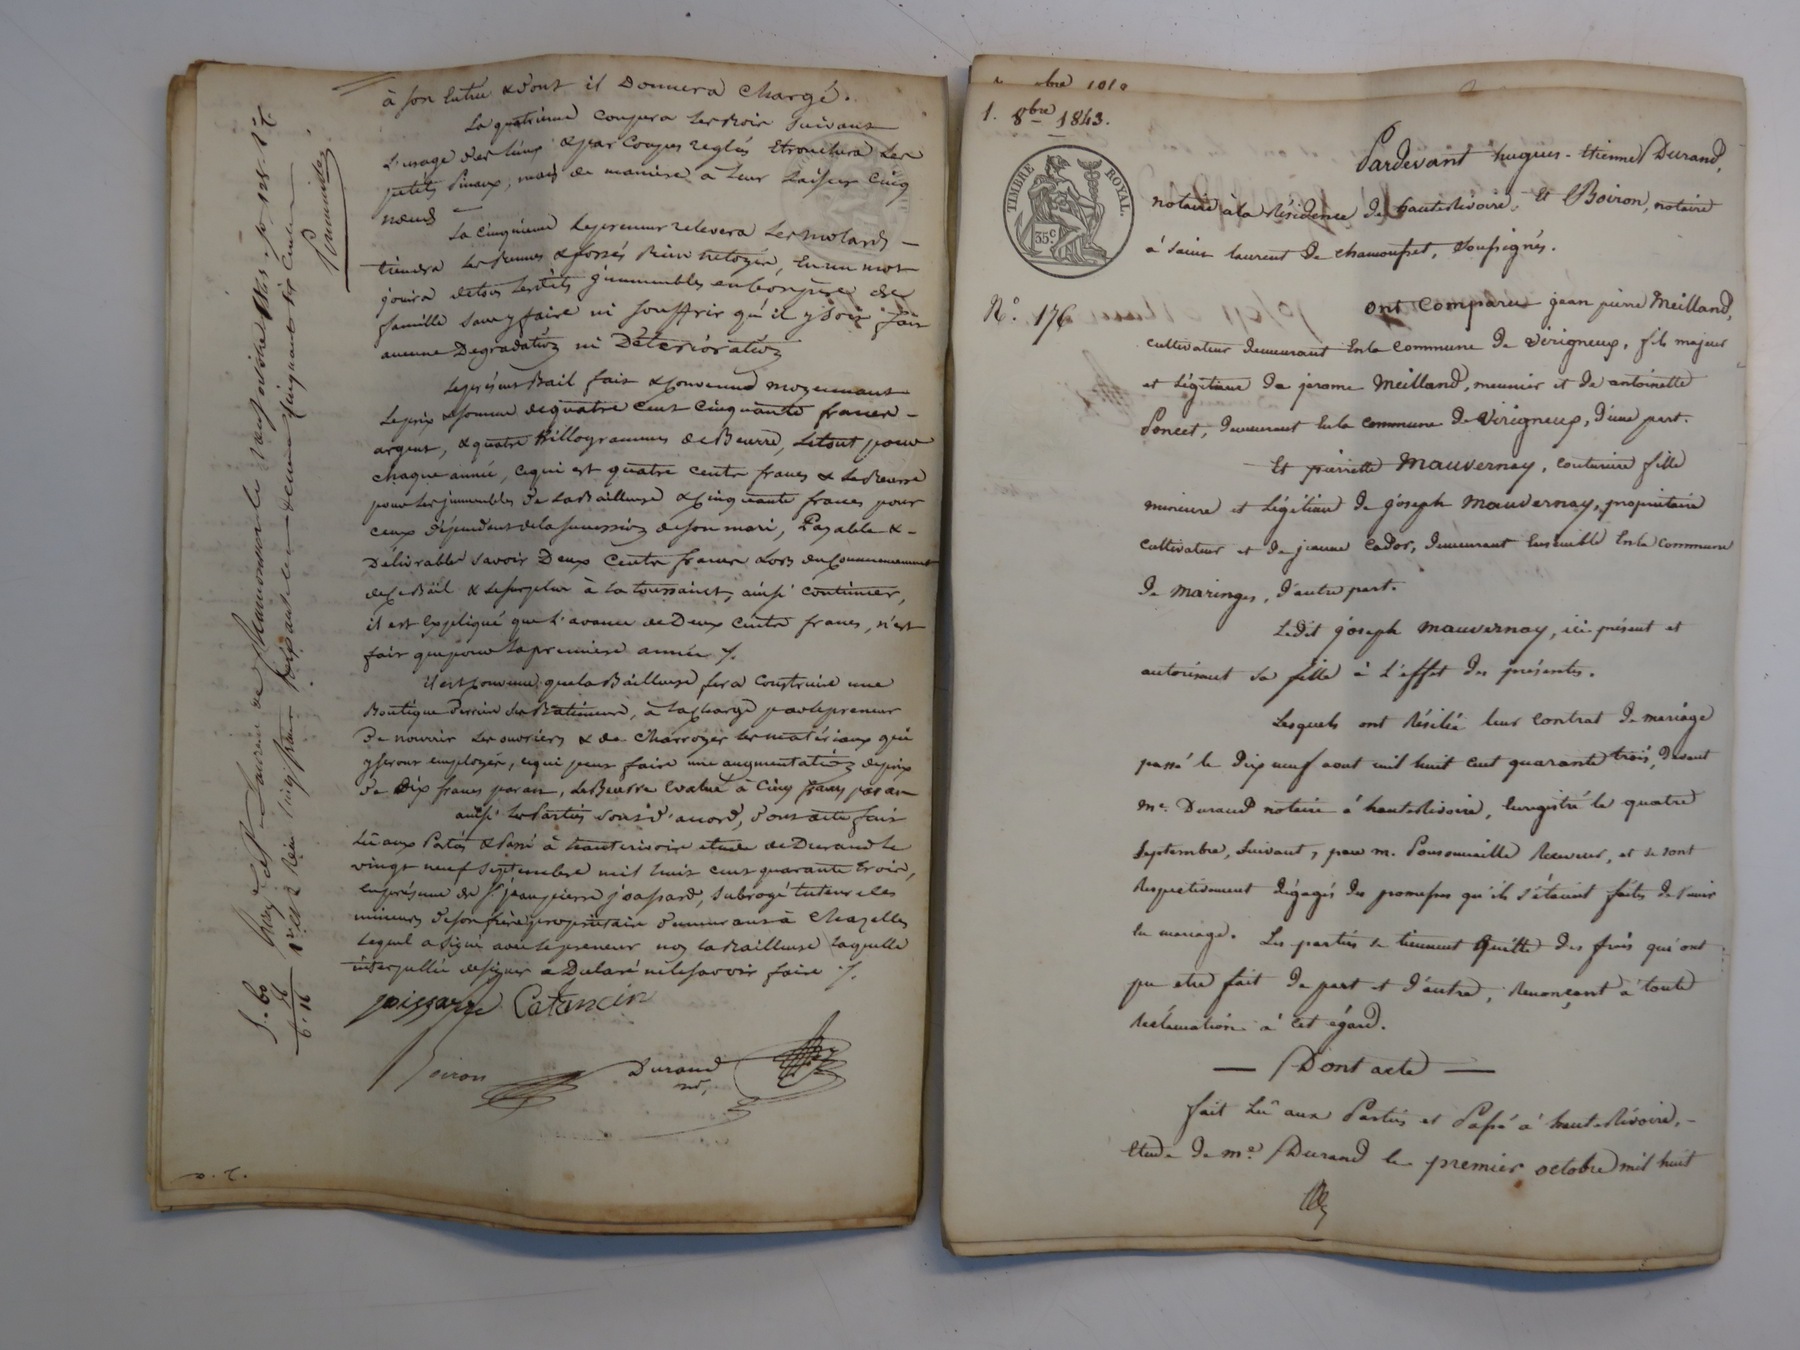 à son Entrée & dont il Donnera Chargé.
La quatrieme Coupera les Bois suivant
L'usage des lieux & par Coupes reglés Etronctera les
petits Pinaux, mais de maniere à leur Laisser Cinq
nœuds
La Cinquieme Le preneur relevera les molards
tiendra les & fossés Bien netoyés, En un mot
jouira detous lesdits jmmeubles enbonpère de
famille sans y faire ni souffrir qu'il y soit fait
aucune Degradation ni Détérioration
Leprésent Bail fait & Convenu moyennant
Leprix & somme dequatre Cent Cinquante francs
argent, & quatre Killogrammes de Beurre, Letout pour
chaque année, cequi est quatre cents francs & Le Beurre
pour les jmmeubles de La Bailleuse & Cinquante francs pour
ceux dépendant dela succession deson mari, Payable &
Délivrable savoir Deux Cents francs Lors du Commencement
de ce Bail & Lesurplus à la toussaint, ainsi continuer,
il est Expliqué que L'avance de Deux Cents francs, n'est
fait que pour La premiere année ./.
il est Convenu que La Bailleuse fera Construire une
Boutique Derriere les Batiments, à la Charge par le preneur
De nourrir Les ouvriers & de Charroyer les matériaux qui
y seront employés, cequi peut faire une augmentation deprix
De Dix francs par an, Le Beurre Evalué à Cinq francs par an
ainsi les Parties sont d'accord, Dont acte fait
Lû aux Parties & Passé à hauterivoire etude de Durand le
vingt neuf septembre mil huit cent quarante trois,
En présence de Sr. jean pierre joassard, subrogé tuteur des
mineurs Deson frère propriétaire Demeurant à Chazelles
Lequel a signé avec Lepreneur non La Bailleuse Laquelle
interpellée designer a Declaré ne le savoir faire ./.
Catancin
Boiron Durand
nre,
1. 8bre 1843.
TIMBRE ROYAL.
35c
Pardevant hugues-Etienne Durand,
notaire a la Résidence de hauteRivoire, Et Boiron, notaire
à saint laurent de chamousset, soussignés.
N.° 176
Ont Comparu jean pierre Meilland,
cultivateur demeurant En la commune de Virigneux, fils majeur
et Légitime de jerome Meilland, meunier et de antoinette
Poncet, demeurant En la commune de Virigneux, d'une part.
Et pierrette Mauvernay, couturiere fille
mineure et Légitime de joseph Mauvernay, propriétaire
cultivateur et de jeanne Cador, demeurant Ensemble En la Commune
de Maringes, d'autre part.
Ledit joseph Mauvernay, ici présent et
autorisant sa fille à l'effet des présentes.
Lesquels ont Résilié leur contrat de mariage
passé le dix neuf aout mil huit cent quarante trois, devant
me. Durand notaire à hauteRivoire, Enregistré le quatre
septembre, suivant, par m. Ponsonnaille Receveur, et se sont
Respectivement dégagés des promesses qu'ils s'étaient faites de s'unir
en mariage. Les parties se tiennent Quitte des frais qui ont
pu etre fait de part et d'autre, Renonçant à toute
Réclamation à cet égard.
— Dont acte —
fait Lû aux Parties et Passé à haute Rivoire,
etude de me Durand le premier octobre mil huit